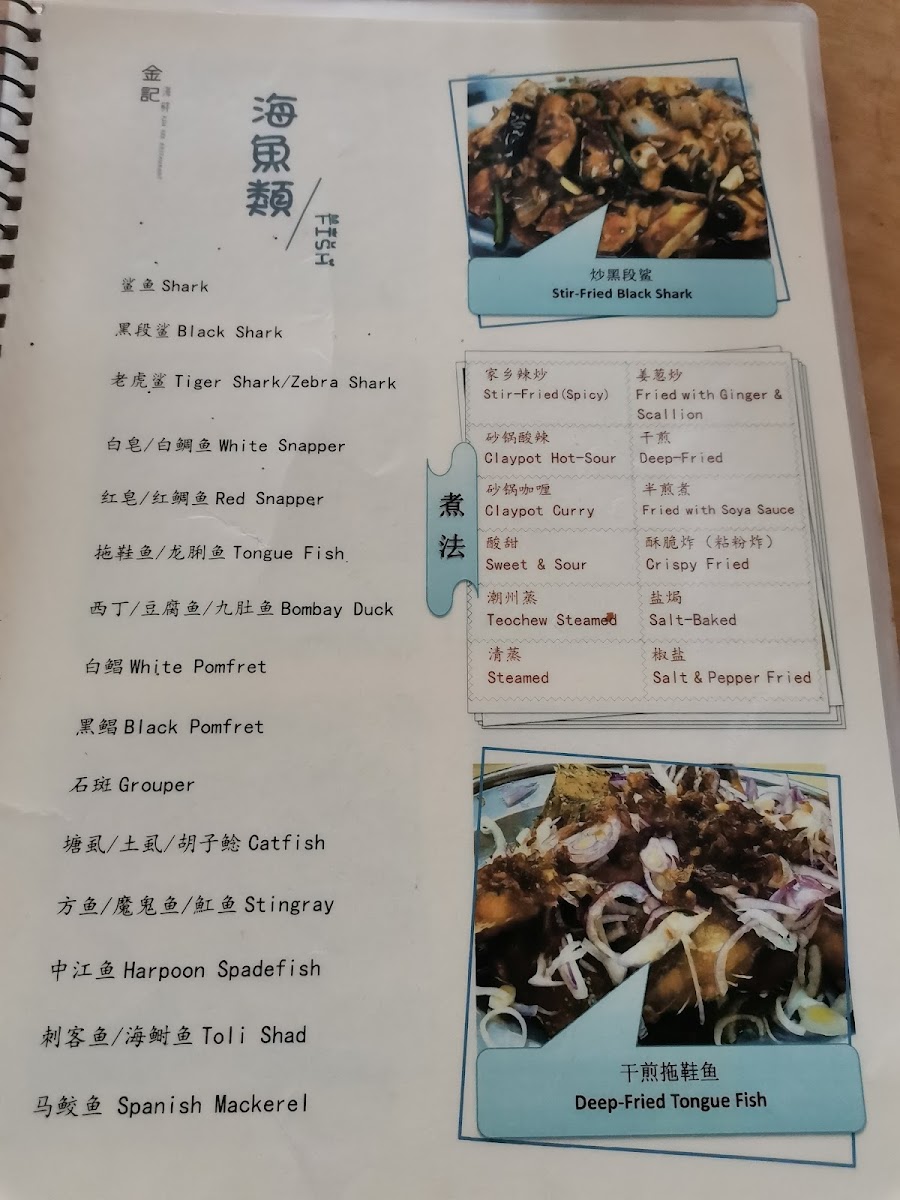 金記
海鮮
海魚類
FISH
鲨鱼 Shark
黑段鲨 Black Shark
老虎鲨 Tiger Shark/Zebra Shark
白皂/白鲷鱼 White Snapper
红皂/红鲷鱼 Red Snapper
拖鞋鱼/龙脷鱼 Tongue Fish
西丁/豆腐鱼/九肚鱼 Bombay Duck
白鲳 White Pomfret
黑鲳 Black Pomfret
石斑 Grouper
塘虱/土虱/胡子鲶 Catfish
方鱼/魔鬼鱼/魟鱼 Stingray
中江鱼 Harpoon Spadefish
刺客鱼/海鲥鱼 Toli Shad
马鲛鱼 Spanish Mackerel
炒黑段鲨
Stir-Fried Black Shark
煮法
家乡辣炒
Stir-Fried(Spicy)
姜葱炒
Fried with Ginger &
Scallion
砂锅酸辣
Claypot Hot-Sour
干煎
Deep-Fried
砂锅咖喱
Claypot Curry
半煎煮
Fried with Soya Sauce
酸甜
Sweet & Sour
酥脆炸（粘粉炸）
Crispy Fried
潮州蒸
Teochew Steamed
盐焗
Salt-Baked
清蒸
Steamed
椒盐
Salt & Pepper Fried
干煎拖鞋鱼
Deep-Fried Tongue Fish